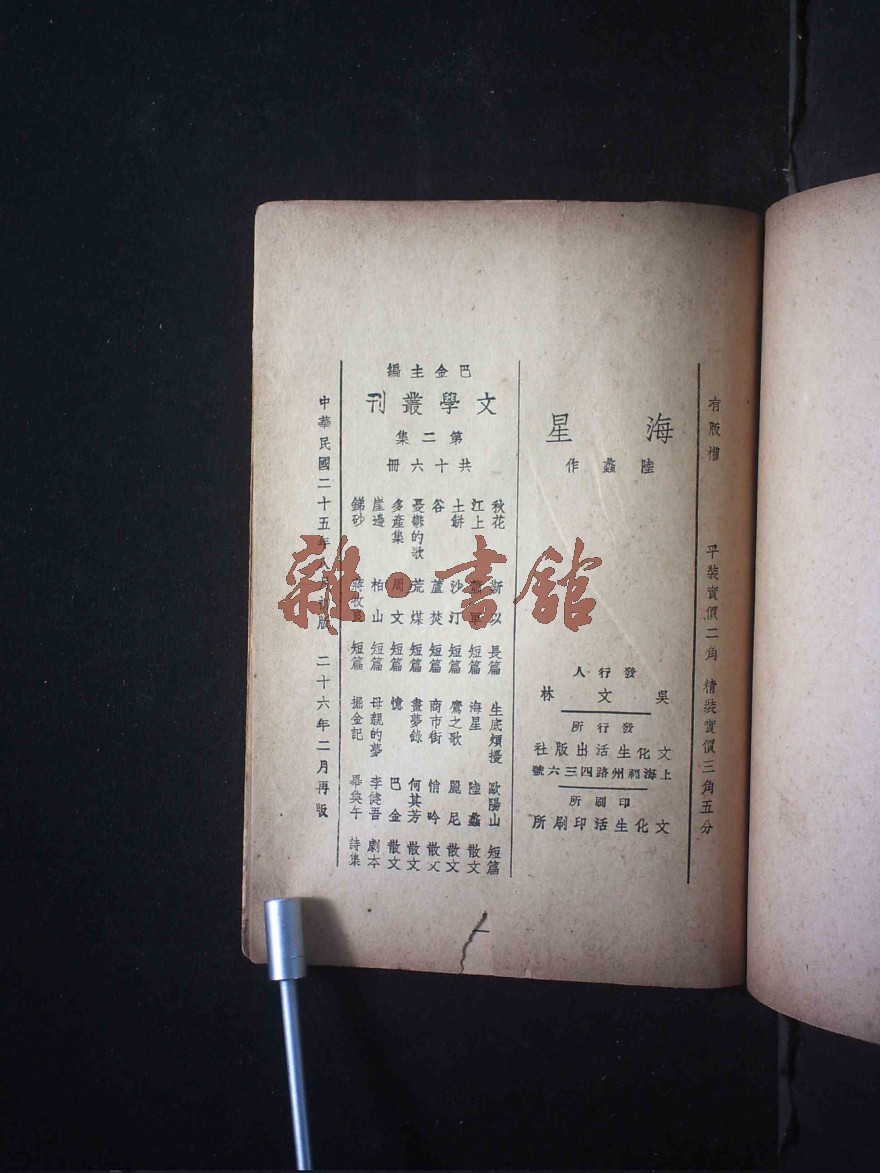 有版權 平裝實價二角 精裝實價三角五分
海星
陸蠡作
發行人
吳文林
發行所
文化生活出版社
上海福州路四三六號
印刷所
文化生活印刷所
巴金主編
文學叢刊
第二集
共十六冊
秋花 靳以 長篇 生底煩擾 歐陽山 短篇
江上 蕭軍 短篇 海星 陸蠡 散文
土餅 沙汀 短篇 鷹之歌 麗尼 散文
谷 蘆焚 短篇 商市街 悄吟 散文
憂鬱的歌 荒煤 短篇 畫夢錄 何其芳 散文
多產集 周文 短篇 憶 巴金 散文
崖邊 柏山 短篇 母親的夢 李健吾 劇本
銻砂 蔣牧良 短篇 掘金記 畢奐午 詩集
中華民國二十五年八月初版 二十六年二月再版
雜·書館